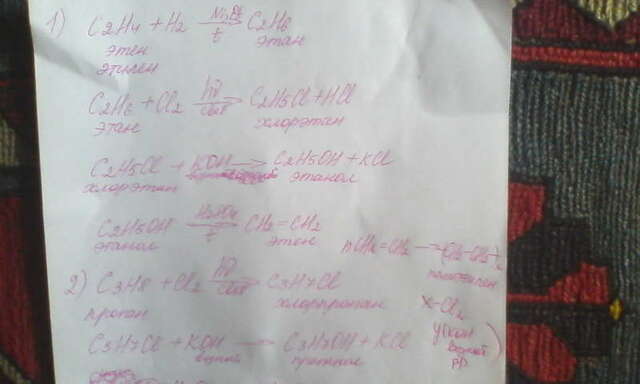 1) C2H4 + H2 Ni, Pt t C2H6
этен этан
этилен
C2H6 + Cl2 hν свет C2H5Cl + HCl
этан хлорэтан
C2H5Cl + KOH C2H5OH + KCl
хлорэтан этанол
C2H5OH H2SO4 t CH2=CH2
этанол этен
nCH2=CH2 → (-CH2-CH2-)n
полиэтилен
2) C3H8 + Cl2 hν свет C3H7Cl
пропан хлорпропан
x-Cl2
C3H7Cl + KOH → C3H7OH + KCl
водный пропанол
y KOH
водный
рр